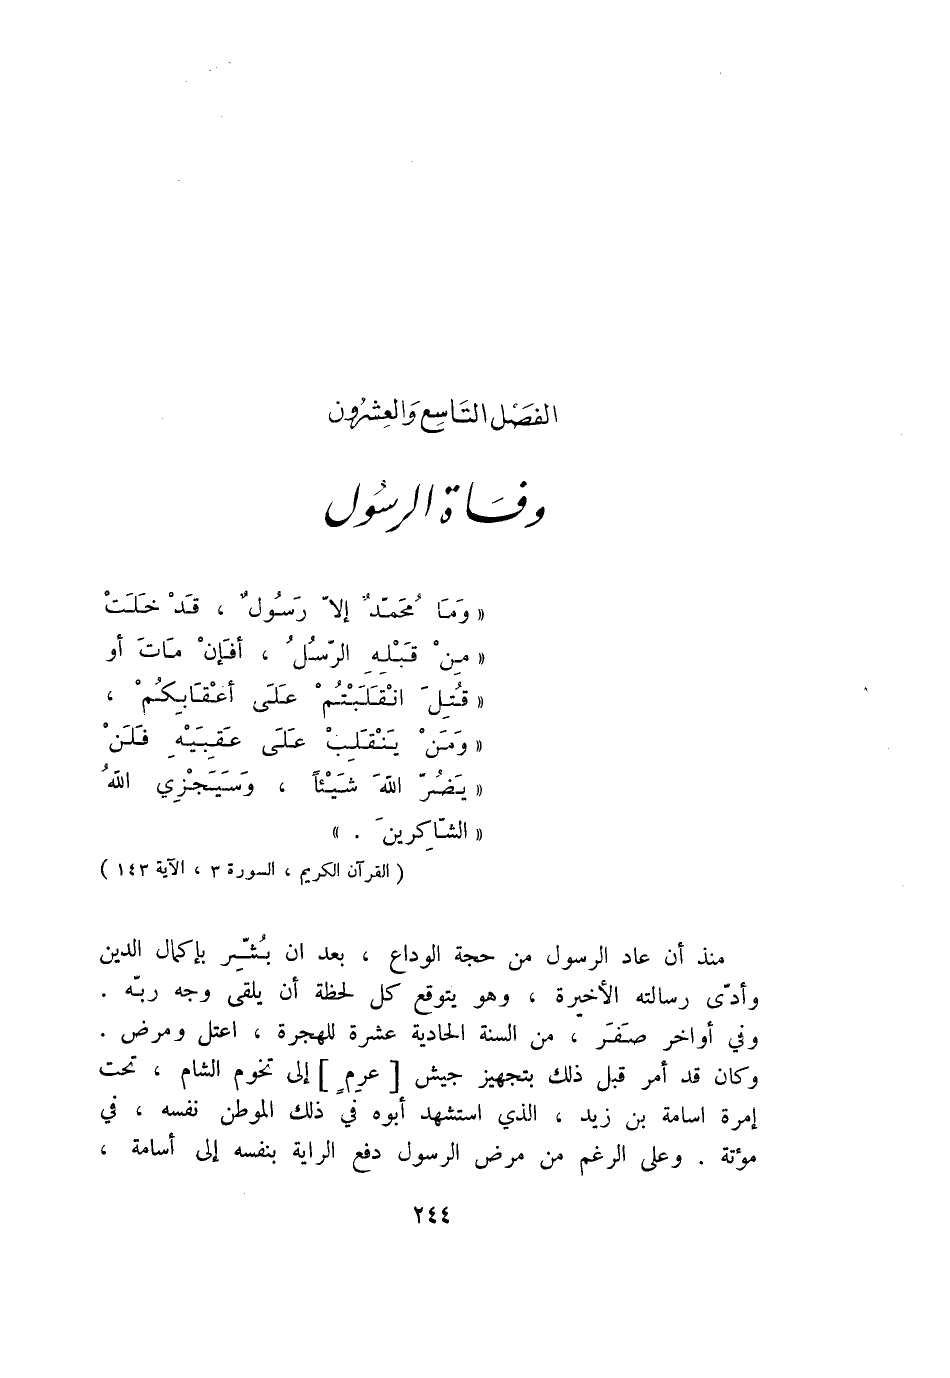 الفصل التاسع والعشرون
وفاة الرسول
« وَمَا مُحَمَّدٌ إلاّ رَسُولٌ ، قَدْ خَلَتْ
« مِنْ قَبْلِهِ الرّسُلُ ، أفَإنْ مَاتَ أو
« قُتِلَ انْقَلَبْتُمْ عَلَى أعْقَابِكُمْ ،
« وَمَنْ يَنْقَلِبْ عَلَى عَقِبَيْهِ فَلَنْ
« يَضُرّ اللّهَ شَيْئاً ، وَسَيَجْزِي اللّهُ
« الشّاكِرينَ . »
( القرآن الكريم ، السورة ٣ ، الآية ١٤٣ )
منذ أن عاد الرسول من حجة الوداع ، بعد ان بُشِّر بإكمال الدين
وأدّى رسالته الأخيرة ، وهو يتوقع كل لحظة أن يلقى وجه ربّه .
وفي أواخر صَفَر ، من السنة الحادية عشرة للهجرة ، اعتل ومرض .
وكان قد أمر قبل ذلك بتجهيز جيش [ عرِمٍ ] إلى تخوم الشام ، تحت
إمرة اسامة بن زيد ، الذي استشهد أبوه في ذلك الموطن نفسه ، في
مؤتة . وعلى الرغم من مرض الرسول دفع الراية بنفسه إلى أسامة ،
٢٤٤